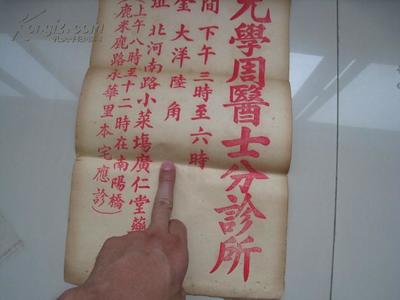 學周醫士分診所
間 下午三時至六時
大洋陸角
北河南路小菜場廣仁堂藥
(上午八時至十二時在南陽橋
鹿米鹿路永華里本宅應診)